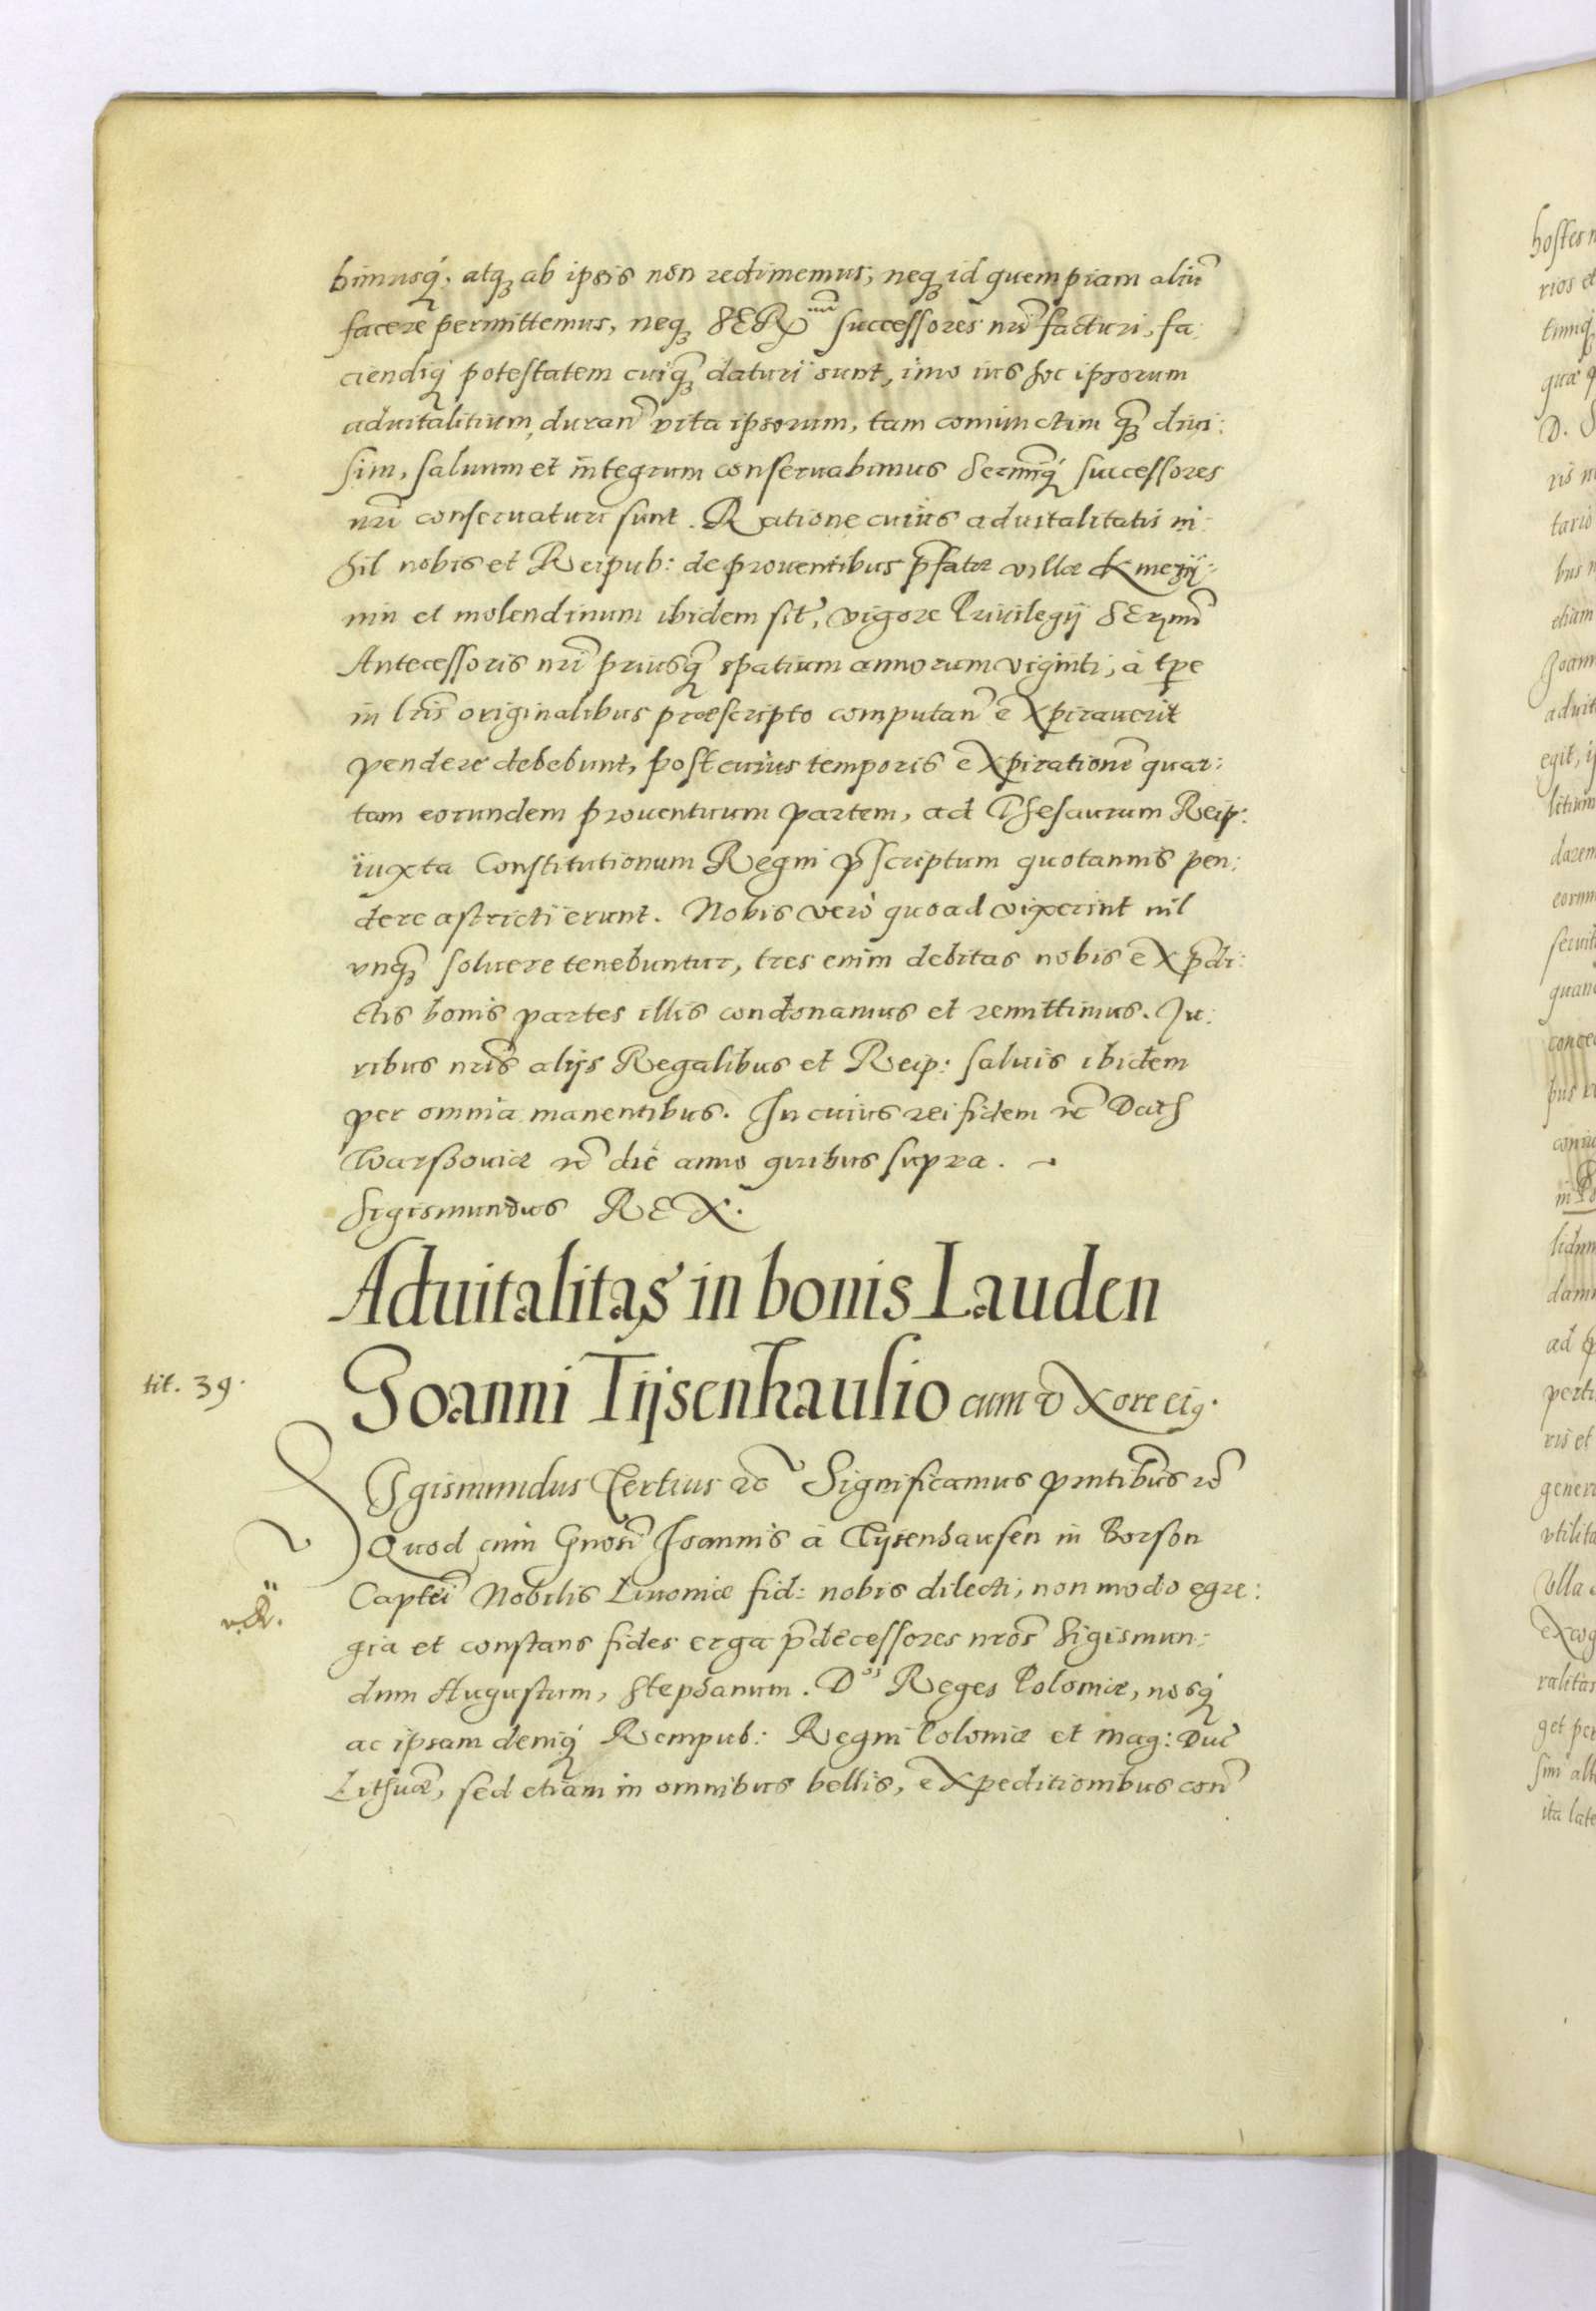 bimusq́, atq́ ab ipsis non redimemus, neq́ id quempiam aliũ
facere permittemus, neq́ SERmi successores nri̅ facturi, fa:
ciendiq́ potestatem cuiq̃ daturi sunt, imo ius hoc ipsorum
aduitalitium, duran̅ vita ipsorum, tam coniunctim q̃ diui:
sim, saluum et integrum conseruabimus Sermiq́ successores
nri̅ conseruaturi sunt. Ratione cuius aduitalitatis ni:
hil nobis et Reipub: de prouentibus p̅fatæ villæ Kmezÿ:
nin et molendinum ibidem sit̃, vigore Priuilegij SEr̅mi
Antecessoris nri̅ priusq̃ spatium annorum viginti, à tp̅e
in lris̅ originalibus præscripto computan̅ eXpirauerit
pendere debebunt, post cuius temporis eXpiratione̅ quar:
tam eorundem prouentuum partem, ad Thesaurum Reip:
iuxta Constitutionum Regni p̅scriptum quotannis pen:
dere astricti erunt. Nobis verò quoad vixerint nil
vnq̃ soluere tenebuntur, tres enim debitas nobis eX p̅di:
ctis bonis partes illis condonamus et remittimus. Iu:
ribus nris̅ alijs Regalibus et Reip: saluis ibidem
per omnia manentibus. In cuius rei fidem rc̃ Dath
Warssouiæ rc̃ die anno quibus supra.
Sigismundus REX.
Aduitalitas in bonis Lauden
Joanni Tijsenhausio cum vXore eiꝰ.
tit. 39.
SIgismundus Tertius rc̃ Significamus pn̅tibus rc̃
Quod cum Gnosi̅ Joannis à Tijsenhausen in Borson
Captei̅ Nobilis Liuoniæ fid: nobis dilecti, non modo egre:
gia et constans fides erga p̅decessores nros̅ Sigismun:
dum Augustum, Stephanum. Dos Reges Poloniæ, nosq́
ac ipsam deniq́ Rempub: Regni Poloniæ et Mag: Duc̅
Lithuæ̅, sed etiam in omnibus bellis, eXpeditionibus con̅